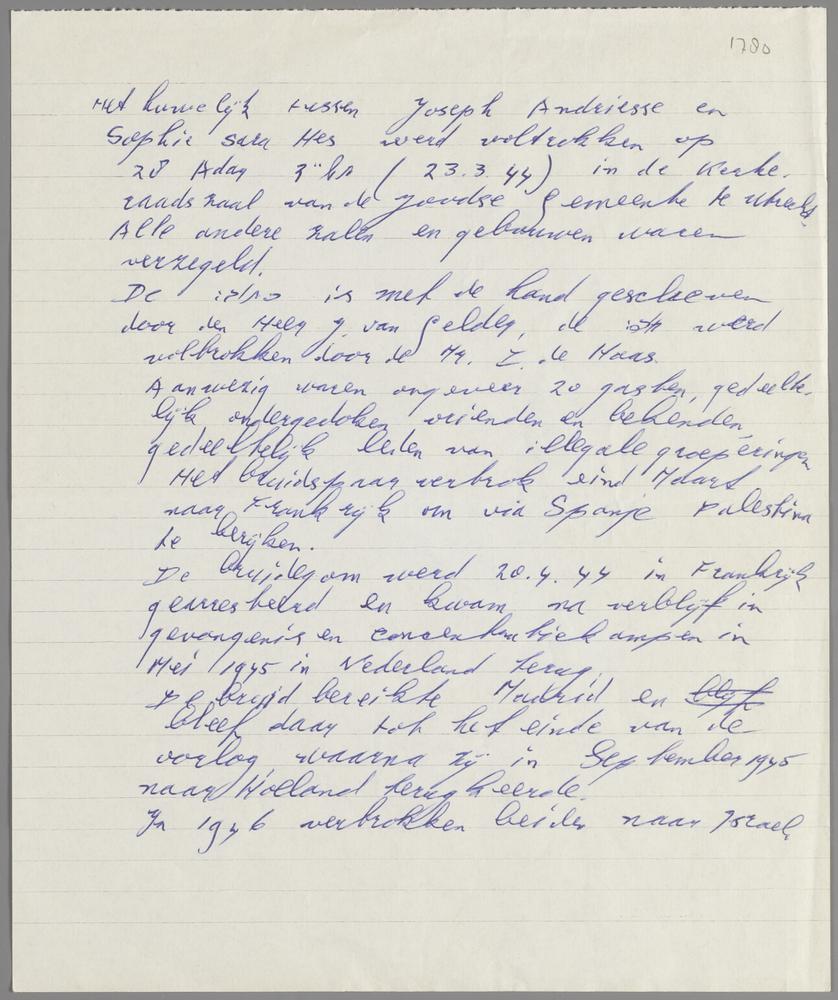 1780
Het huwelijk tussen Joseph Andriesse en
Sophie Sara Hes werd voltrokken op
28 Adar (23.3.44) in de Kerke-
raadszaal van de Joodse Gemeente te Utrecht.
Alle andere zalen en gebouwen waren
verzegeld.
De is met de hand geschreven
door den Heer J. van Gelder, de werd
voltrokken door de Hr. Z. de Haas.
Aanwezig waren ongeveer 20 gasten, gedeelte-
lijk ondergedoken vrienden en bekenden,
gedeeltelijk leden van illegale groeperingen
Het bruidspaar vertrok eind Maart
naar Frankrijk om via Spanje Palestina
te berijken.
De bruidegom werd 20.4.44 in Frankrijk
gearresteerd en kwam na verblijf in
gevangenis en concentratiekampen in
Mei 1945 in Nederland terug.
De bruid bereikte Madrid en blijf
bleef daar tot het einde van de
oorlog waarna zij in September 1945
naar Holland terugkeerde.
In 1946 vertrokken beiden naar Israel.